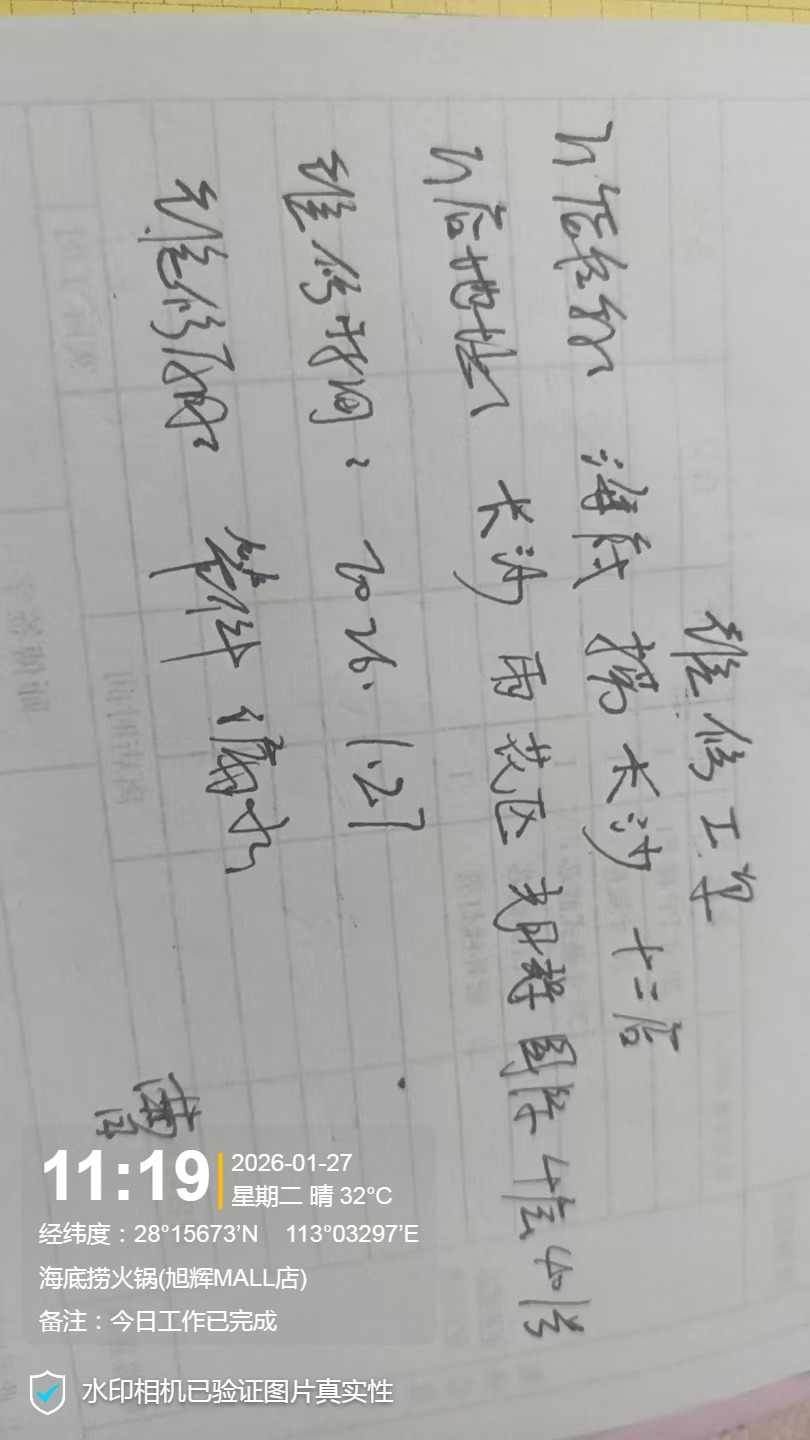 维修工单
门店名称 海底捞长沙十二店
门店地址 长沙雨花区
维修时间：2026.1.27
维修原因：管件漏水
11:19
2026-01-27
星期二 晴 32°C
经纬度：28°15673'N 113°03297'E
海底捞火锅(旭辉MALL店)
备注：今日工作已完成
水印相机已验证图片真实性